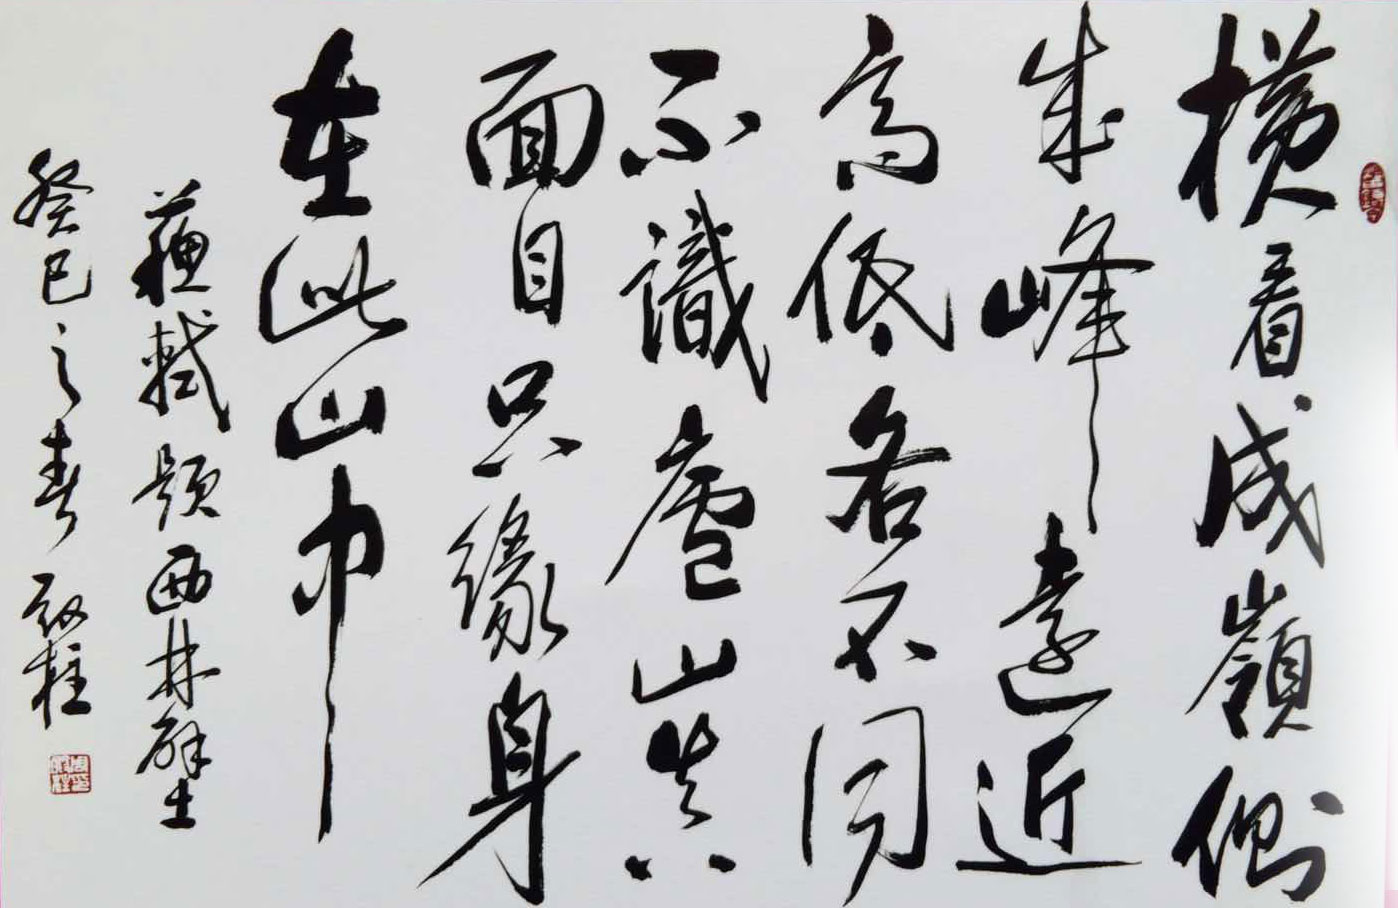 橫看成嶺側
成峰遠近
高低各不同
不識廬山真
面目只緣身
在此山中
蘇軾題西林壁
癸巳之春 柱